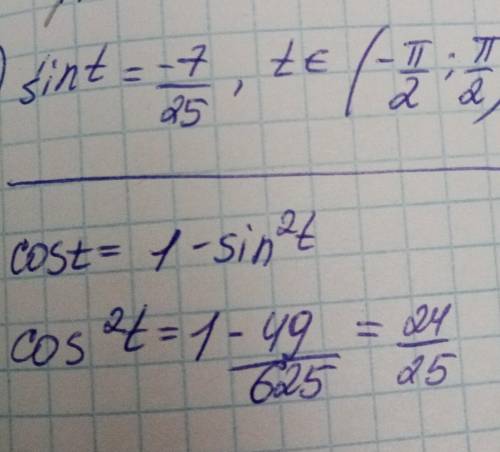 ) sin t = -7/25, t ∈ (-π/2; π/2)
cos t = 1 - sin²t
cos²t = 1 - 49/625 = 24/25